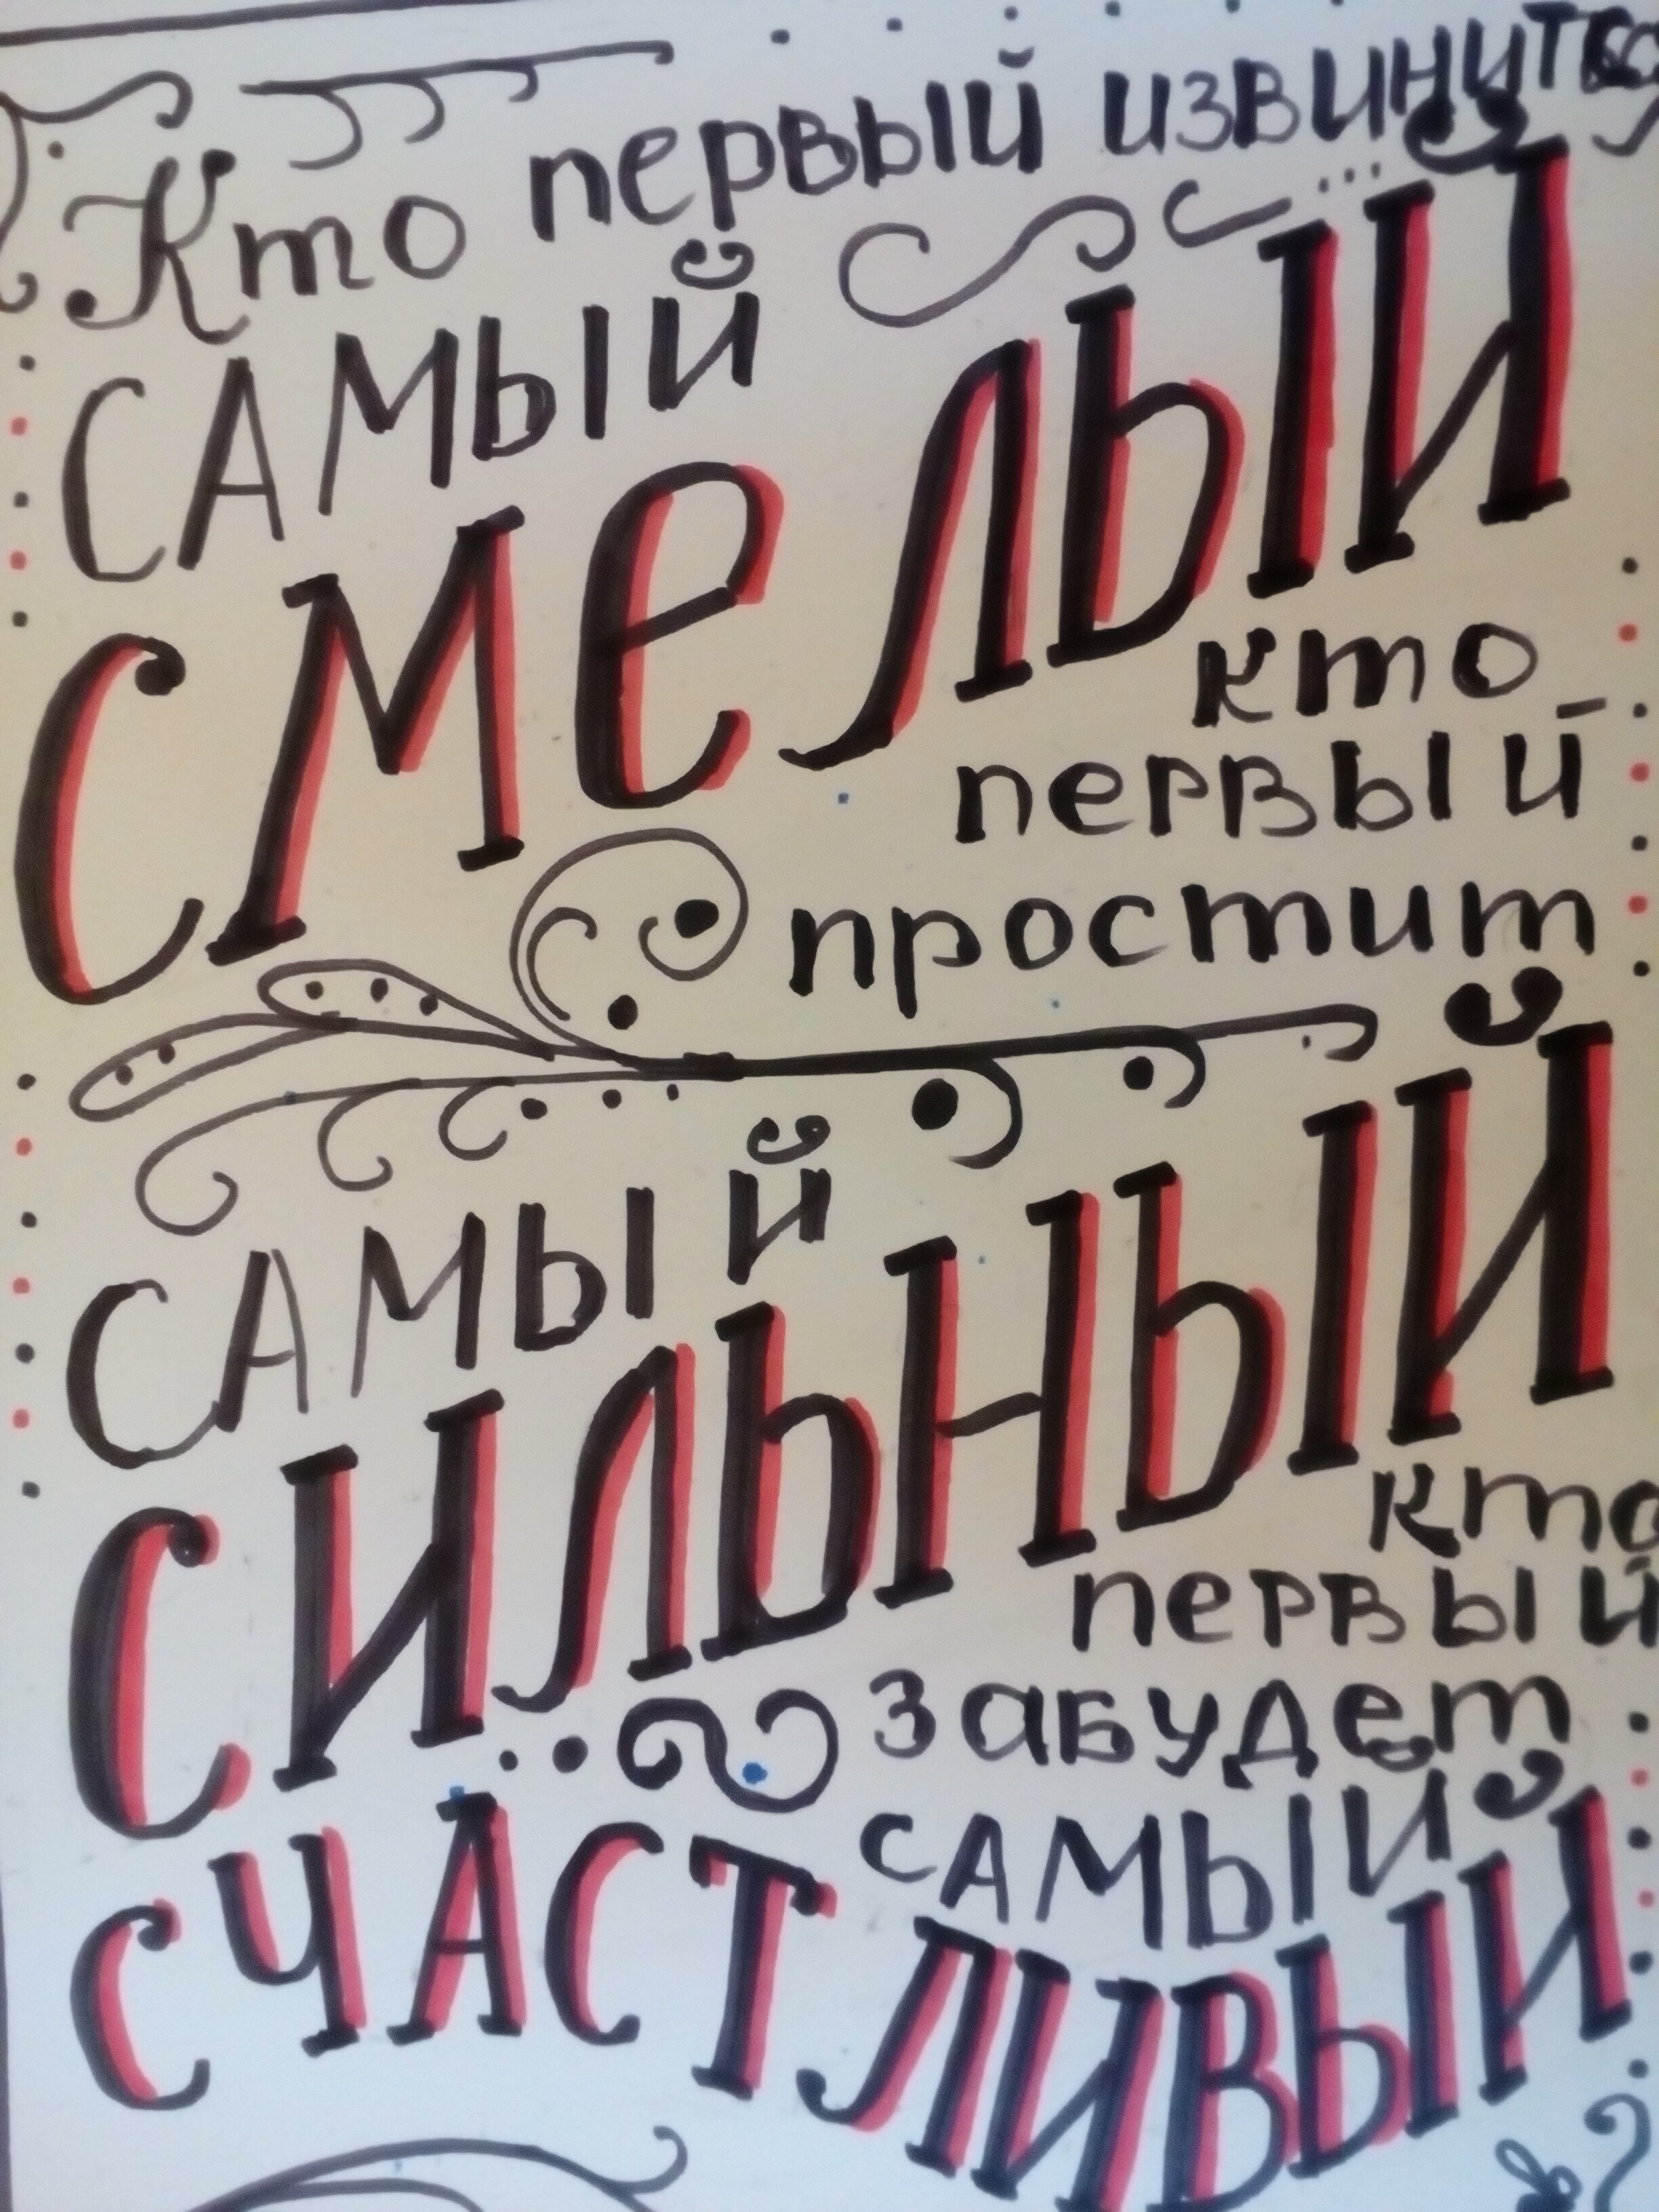 Кто первый извинится
САМЫЙ
СМеЛЫЙ
кто
первый
простит
САМЫЙ
СИЛЬНЫЙ
кто
первый
забудет
САМЫЙ
СЧАСТЛИВЫЙ